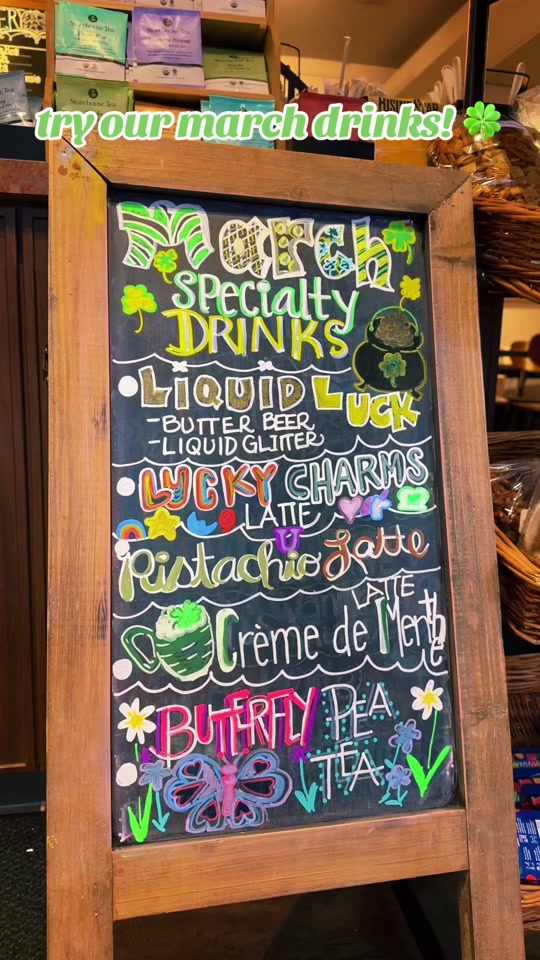 Storehouse Tea
Storehouse Tea
Storehouse Tea
try our march drinks!
March
Specialty
DRINKS
LIQUID LUCK
-BUTTER BEER
-LIQUID GLITTER
LUCKY CHARMS
LATTE
Pistachio Latte
LATTE
Crème de Menthe
BUTTERFLY PEA
TEA